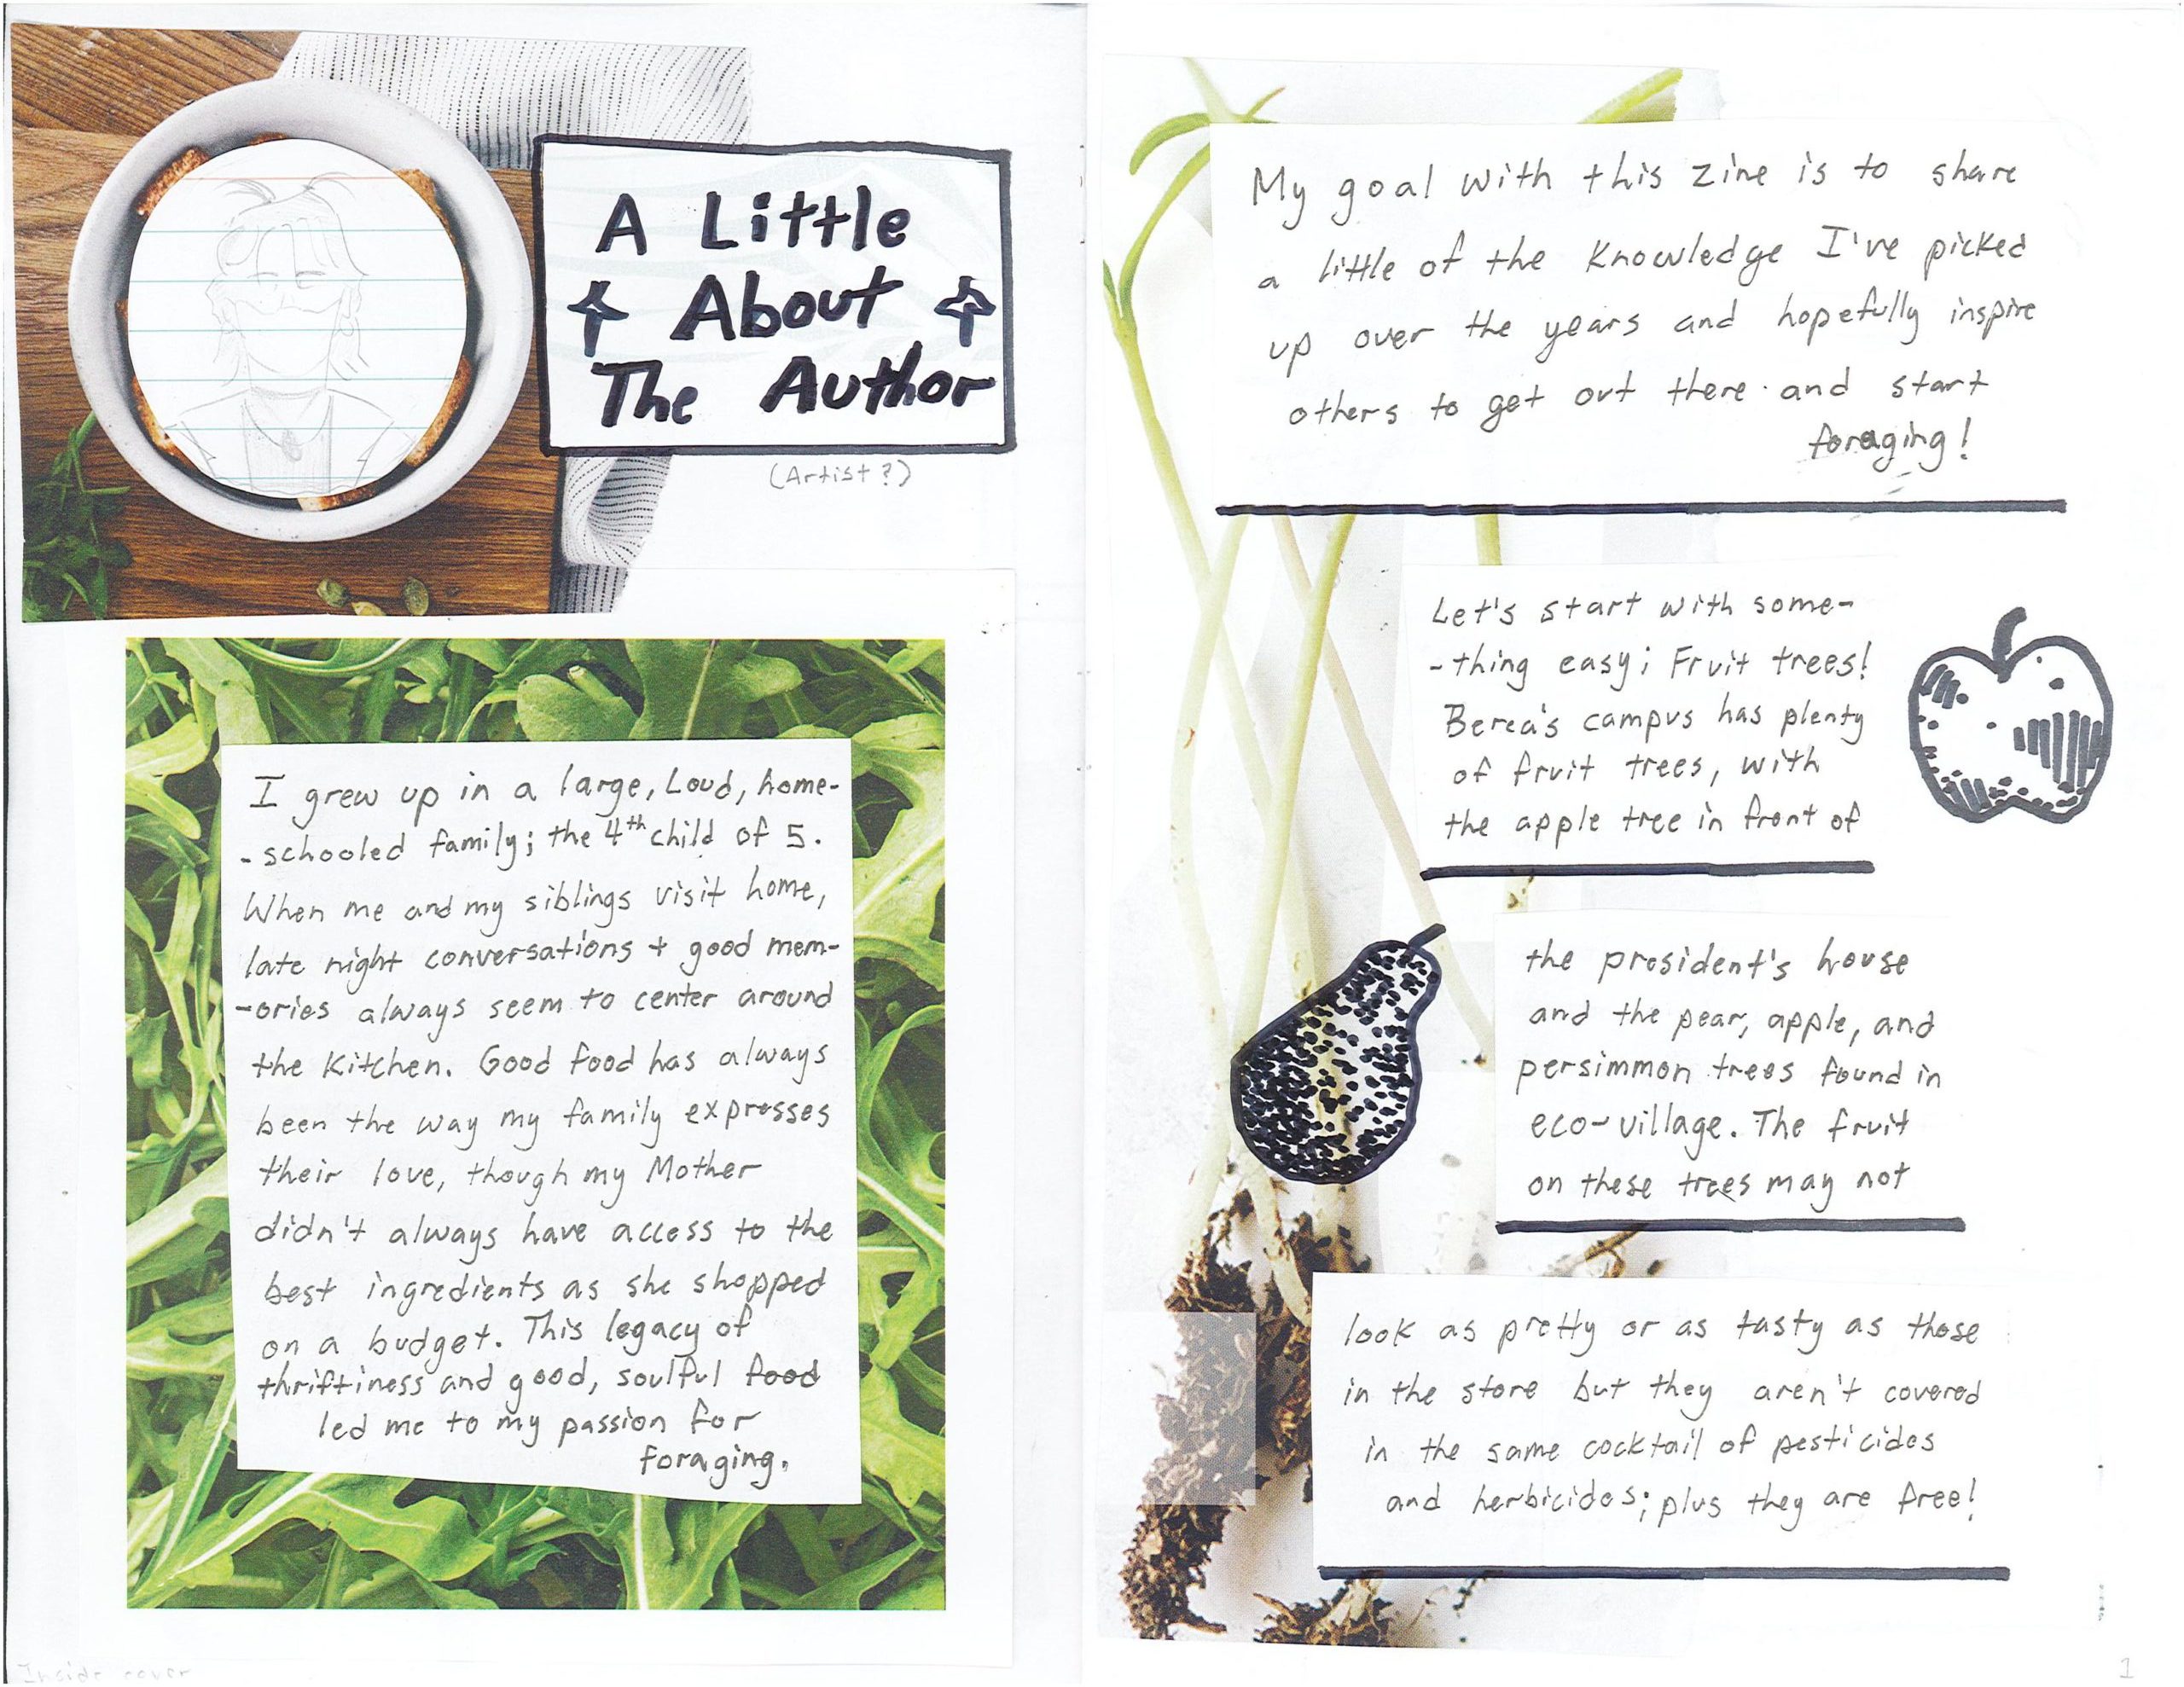 A Little
About
The Author
(Artist?)
I grew up in a large, Loud, home-
-schooled family; the 4th child of 5.
When me and my siblings visit home,
late night conversations + good mem-
-ories always seem to center around
the Kitchen. Good food has always
been the way my family expresses
their love, though my Mother
didn't always have access to the
best ingredients as she shopped
on a budget. This legacy of
thriftiness and good, soulful food
led me to my passion for
foraging.
Inside cover
My goal with this zine is to share
a little of the Knowledge I've picked
up over the years and hopefully inspire
others to get out there and start
foraging!
Let's start with some-
-thing easy; Fruit trees!
Berea's campus has plenty
of fruit trees, with
the apple tree in front of
the president's house
and the pear, apple, and
persimmon trees found in
eco-village. The fruit
on these trees may not
look as pretty or as tasty as those
in the store but they aren't covered
in the same cocktail of pesticides
and herbicides; plus they are free!
1